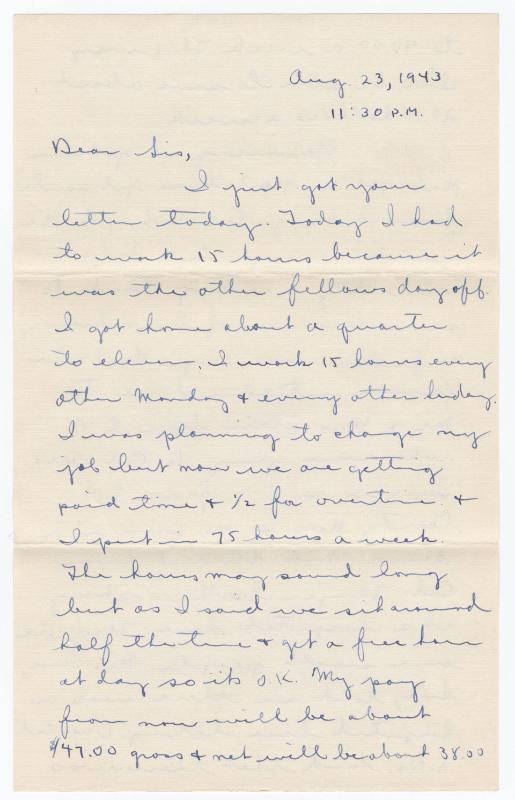 Aug. 23, 1943
11:30 P.M.
Dear Sis,
I just got your
letter today. Today I had
to work 15 hours because it
was the other fellows day off.
I got home about a quarter
to eleven. I work 15 hours every
other Monday & every other
I was planning to change my
job but now we are getting
paid time & 1/2 for overtime &
I put in 75 hours a week.
The hours may sound long
but as I said we sit around
half the time & get a free hour
at day so its O.K. My pay
from now will be about
$47.00 gross & net will be about 38.00